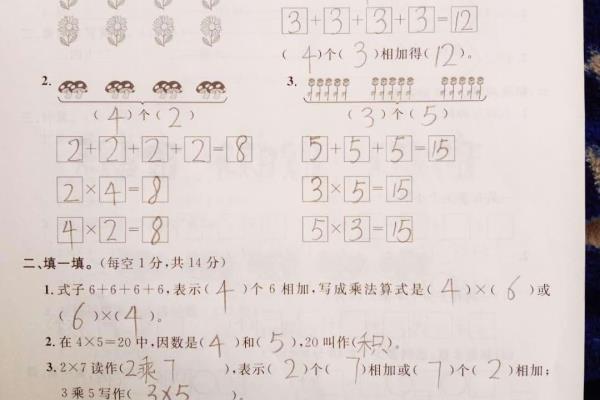 3+3+3+3=12
(4)个(3)相加得(12)。
2.
3.
(4)个(2)
(3)个(5)
2+2+2+2=8
5+5+5=15
2×4=8
3×5=15
4×2=8
5×3=15
二、填一填。(每空1分,共14分)
1.式子6+6+6+6,表示(4)个6相加,写成乘法算式是(4)×(6)或
(6)×(4)。
2.在4×5=20中,因数是(4)和(5),20叫作(积)。
3.2×7读作(2乘7),表示(2)个(7)相加或(7)个(2)相加;
3乘5写作(3×5)。